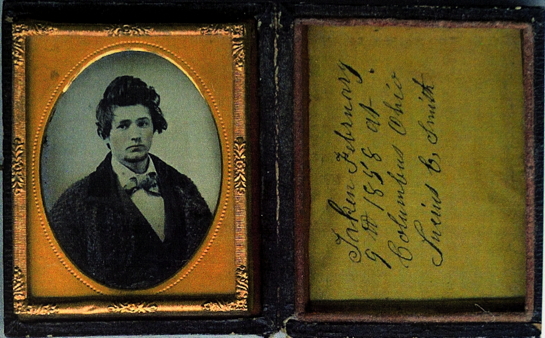 Taken February
9th 1858 at
Columbus Ohio
Lucius C. Smith